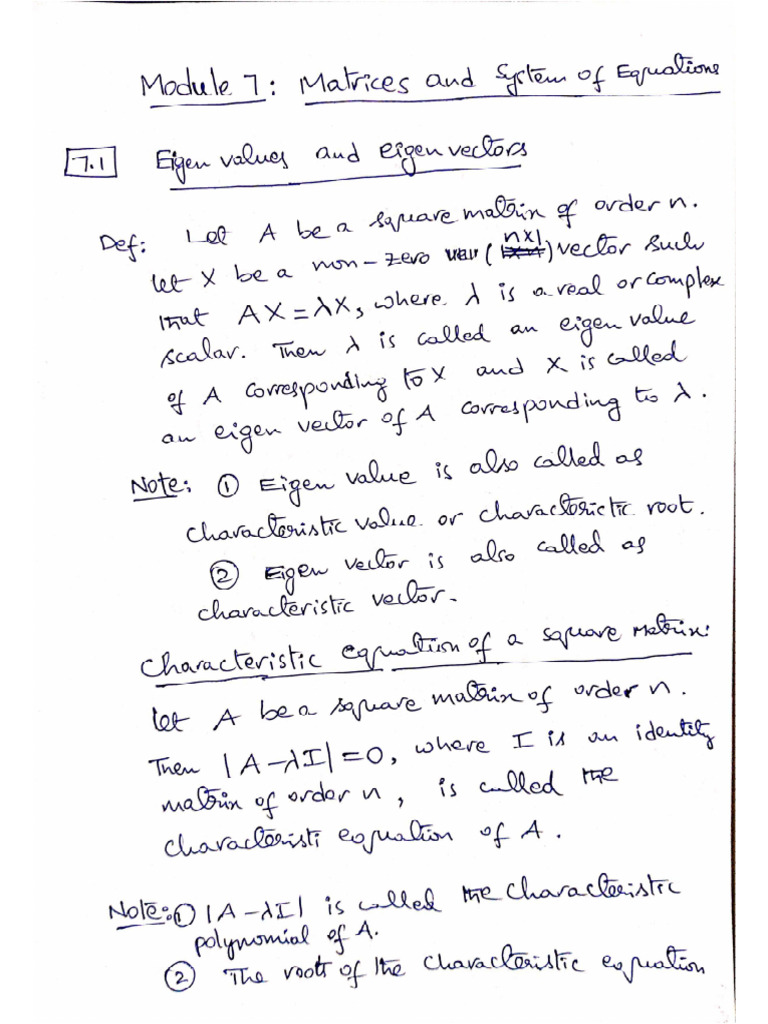 Module 7: Matrices and System of Equations
7.1 Eigen values and eigen vectors
Def: Let A be a square matrix of order n.
let X be a non-zero (n×1) vector such
that AX = λX, where λ is a real or complex
scalar. Then λ is called an eigen value
of A corresponding to X and X is called
an eigen vector of A corresponding to λ.
Note: ① Eigen value is also called as
characteristic value or characterictic root.
② Eigen vector is also called as
characteristic vector.
Characteristic equation of a square matrix:
let A be a square matrix of order n.
Then |A-λI| = 0, where I is an identity
matrix of order n, is called the
characteristi equation of A.
Note: ① |A-λI| is called the characteristic
polynomial of A.
② The roots of the characteristic equation